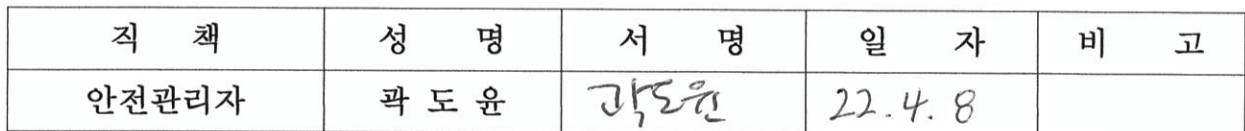 직 책 성 명 서 명 일 자 비 고
안전관리자 곽 도 윤 곽도윤 22.4.8